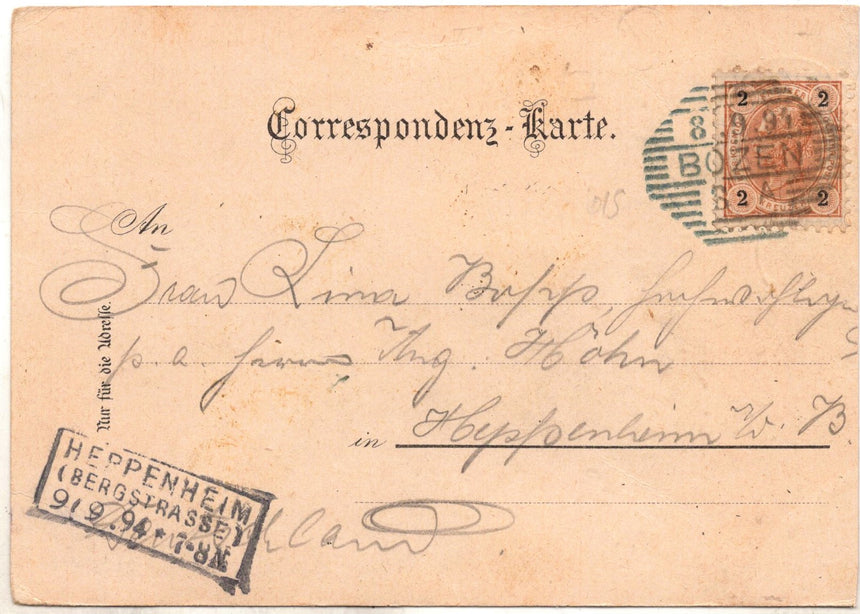 Correspondenz-Karte.
2 2
2 2
8 9.94
BOZEN
An
Frau Lina Bopp, Hochwohlg
p. a. Herrn Aug. Höhn
in Heppenheim a/d. B.
Deutschland
Nur für die Adresse.
HEPPENHEIM
(BERGSTRASSE)
9/9.94 * 7-8N